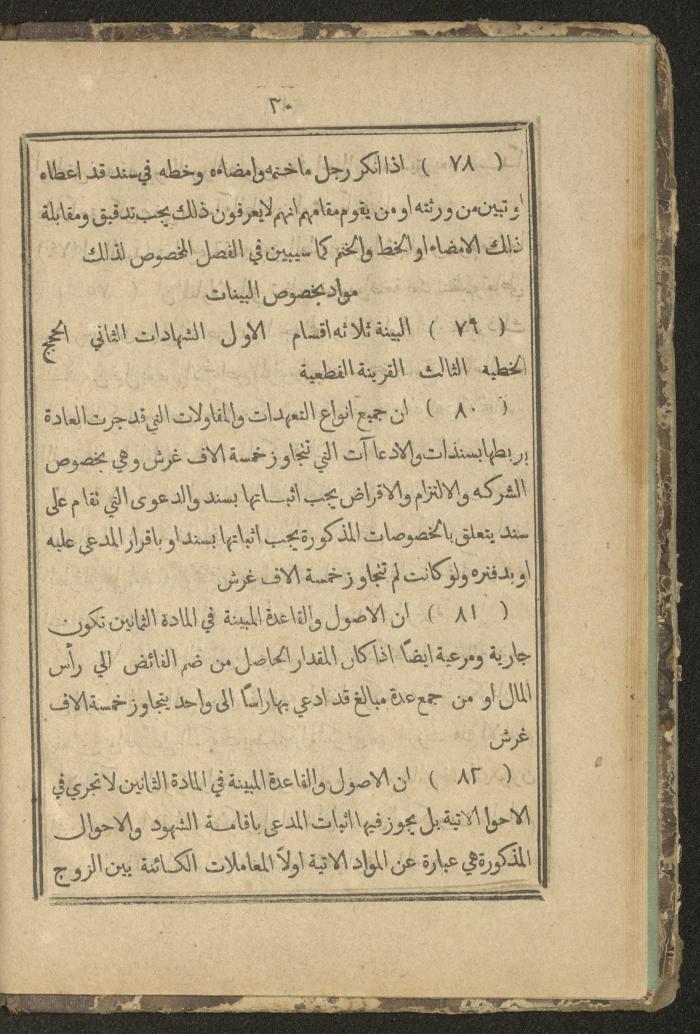 ٣٠
( ٧٨ ) اذا انكر رجل ما ختمه وامضاءه وخطه في سند قد اعطاه
او تبين من ورثته او من يقوم مقامهم انهم لا يعرفون ذلك يجب تدقيق ومقابلة
ذلك الامضاء او الخط والختم كما سيبين في الفصل المخصوص لذلك
مواد بخصوص البينات
( ٧٩ ) البينة ثلاثه اقسام الاول الشهادات الثاني الحجج
الخطيه الثالث القرينة القطعية
( ٨٠ ) ان جميع انواع التعهدات والمقاولات التي قد جرت العادة
بربطها بسندات والادعاآت التي تتجاوز خمسة الاف غرش وهي بخصوص
الشركه والالتزام والاقراض يجب اثباتها بسند والدعوى التي تقام على
سند يتعلق بالخصوصات المذكورة يجب اثباتها بسند او باقرار المدعى عليه
او بدفتره ولو كانت لم تتجاوز خمسة الاف غرش
( ٨١ ) ان الاصول والقاعدة المبينة في المادة الثمانين تكون
جارية ومرعية ايضًا اذا كان المقدار الحاصل من ضم الفائض الي رأس
المال او من جمع عدة مبالغ قد ادعي بها راسًا الى واحد يتجاوز خمسة الاف
غرش
( ٨٢ ) ان الاصول والقاعدة المبينة في المادة الثمانين لا تجري في
الاحوا الاتية بل يجوز فيها اثبات المدعى باقامة الشهود والاحوال
المذكورة هي عبارة عن المواد الاتية اولاً المعاملات الكائنة بين الزوج